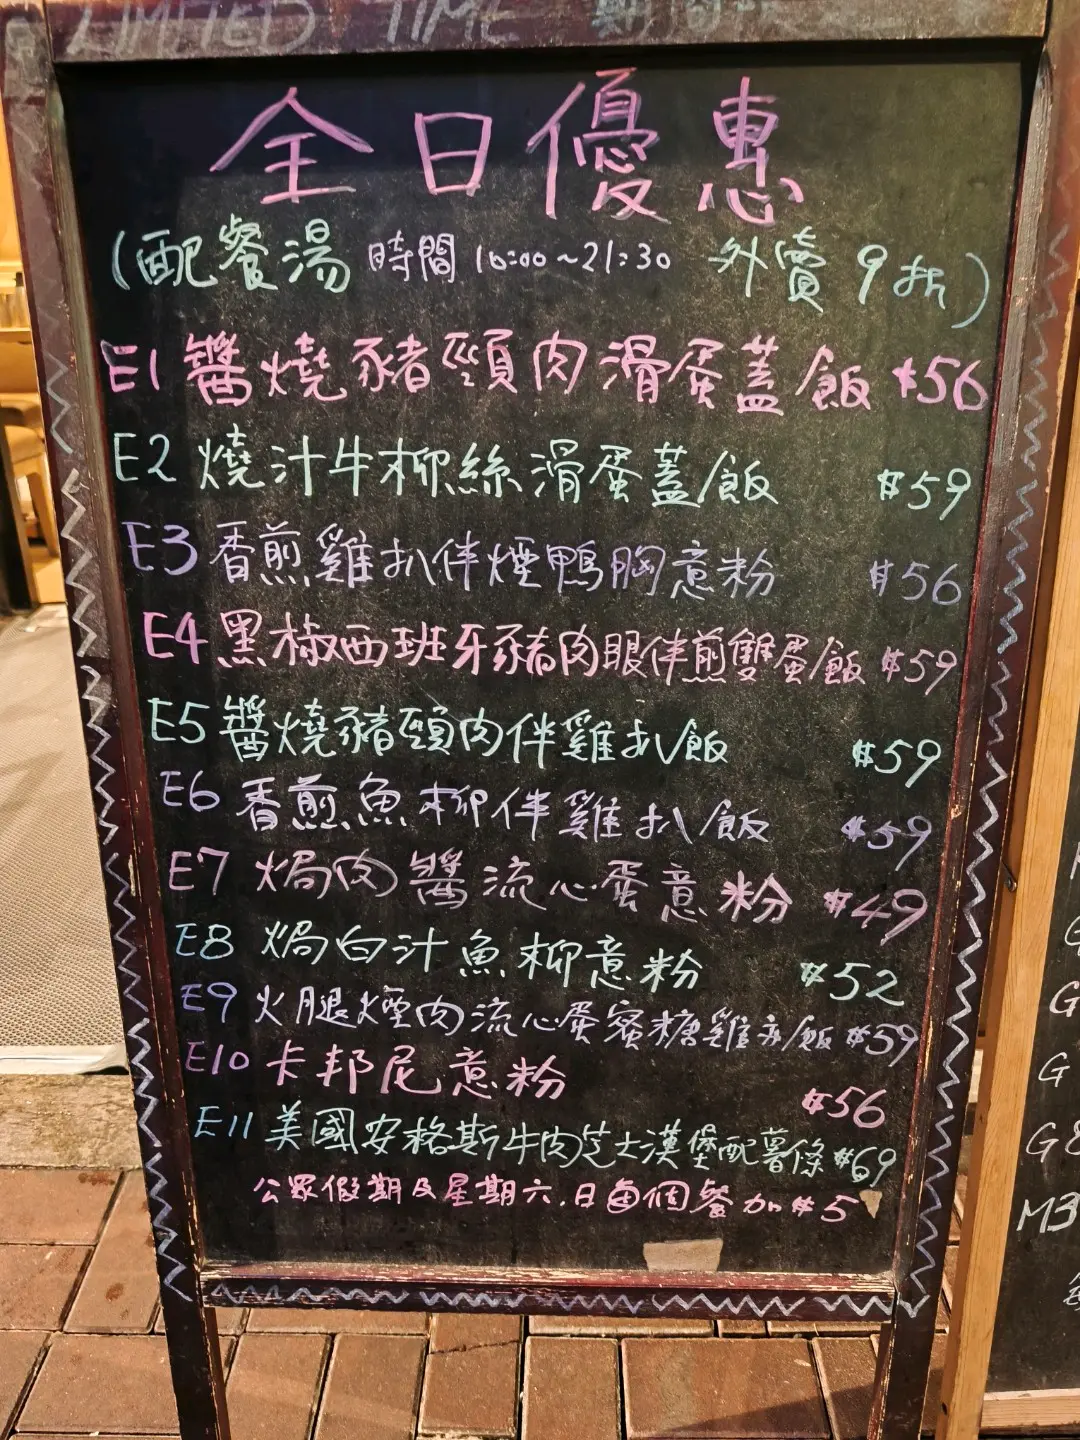 LIMITED TIME
全日優惠
(配餐湯 時間 10:00~21:30 外賣 9 折)
E1 醬燒豬頸肉滑蛋蓋飯 $56
E2 燒汁牛柳絲滑蛋蓋飯 $59
E3 香煎雞扒伴煙鴨胸意粉 $56
E4 黑椒西班牙豬肉眼伴煎雙蛋飯 $59
E5 醬燒豬頸肉伴雞扒飯 $59
E6 香煎魚柳伴雞扒飯 $59
E7 焗肉醬流心蛋意粉 $49
E8 焗白汁魚柳意粉 $52
E9 火腿煙肉流心蛋蜜糖雞亦飯 $59
E10 卡邦尼意粉 $56
E11 美國安格斯牛肉芝士漢堡配薯條 $69
公眾假期及星期六,日每個餐加$5
G
G
G8
M3